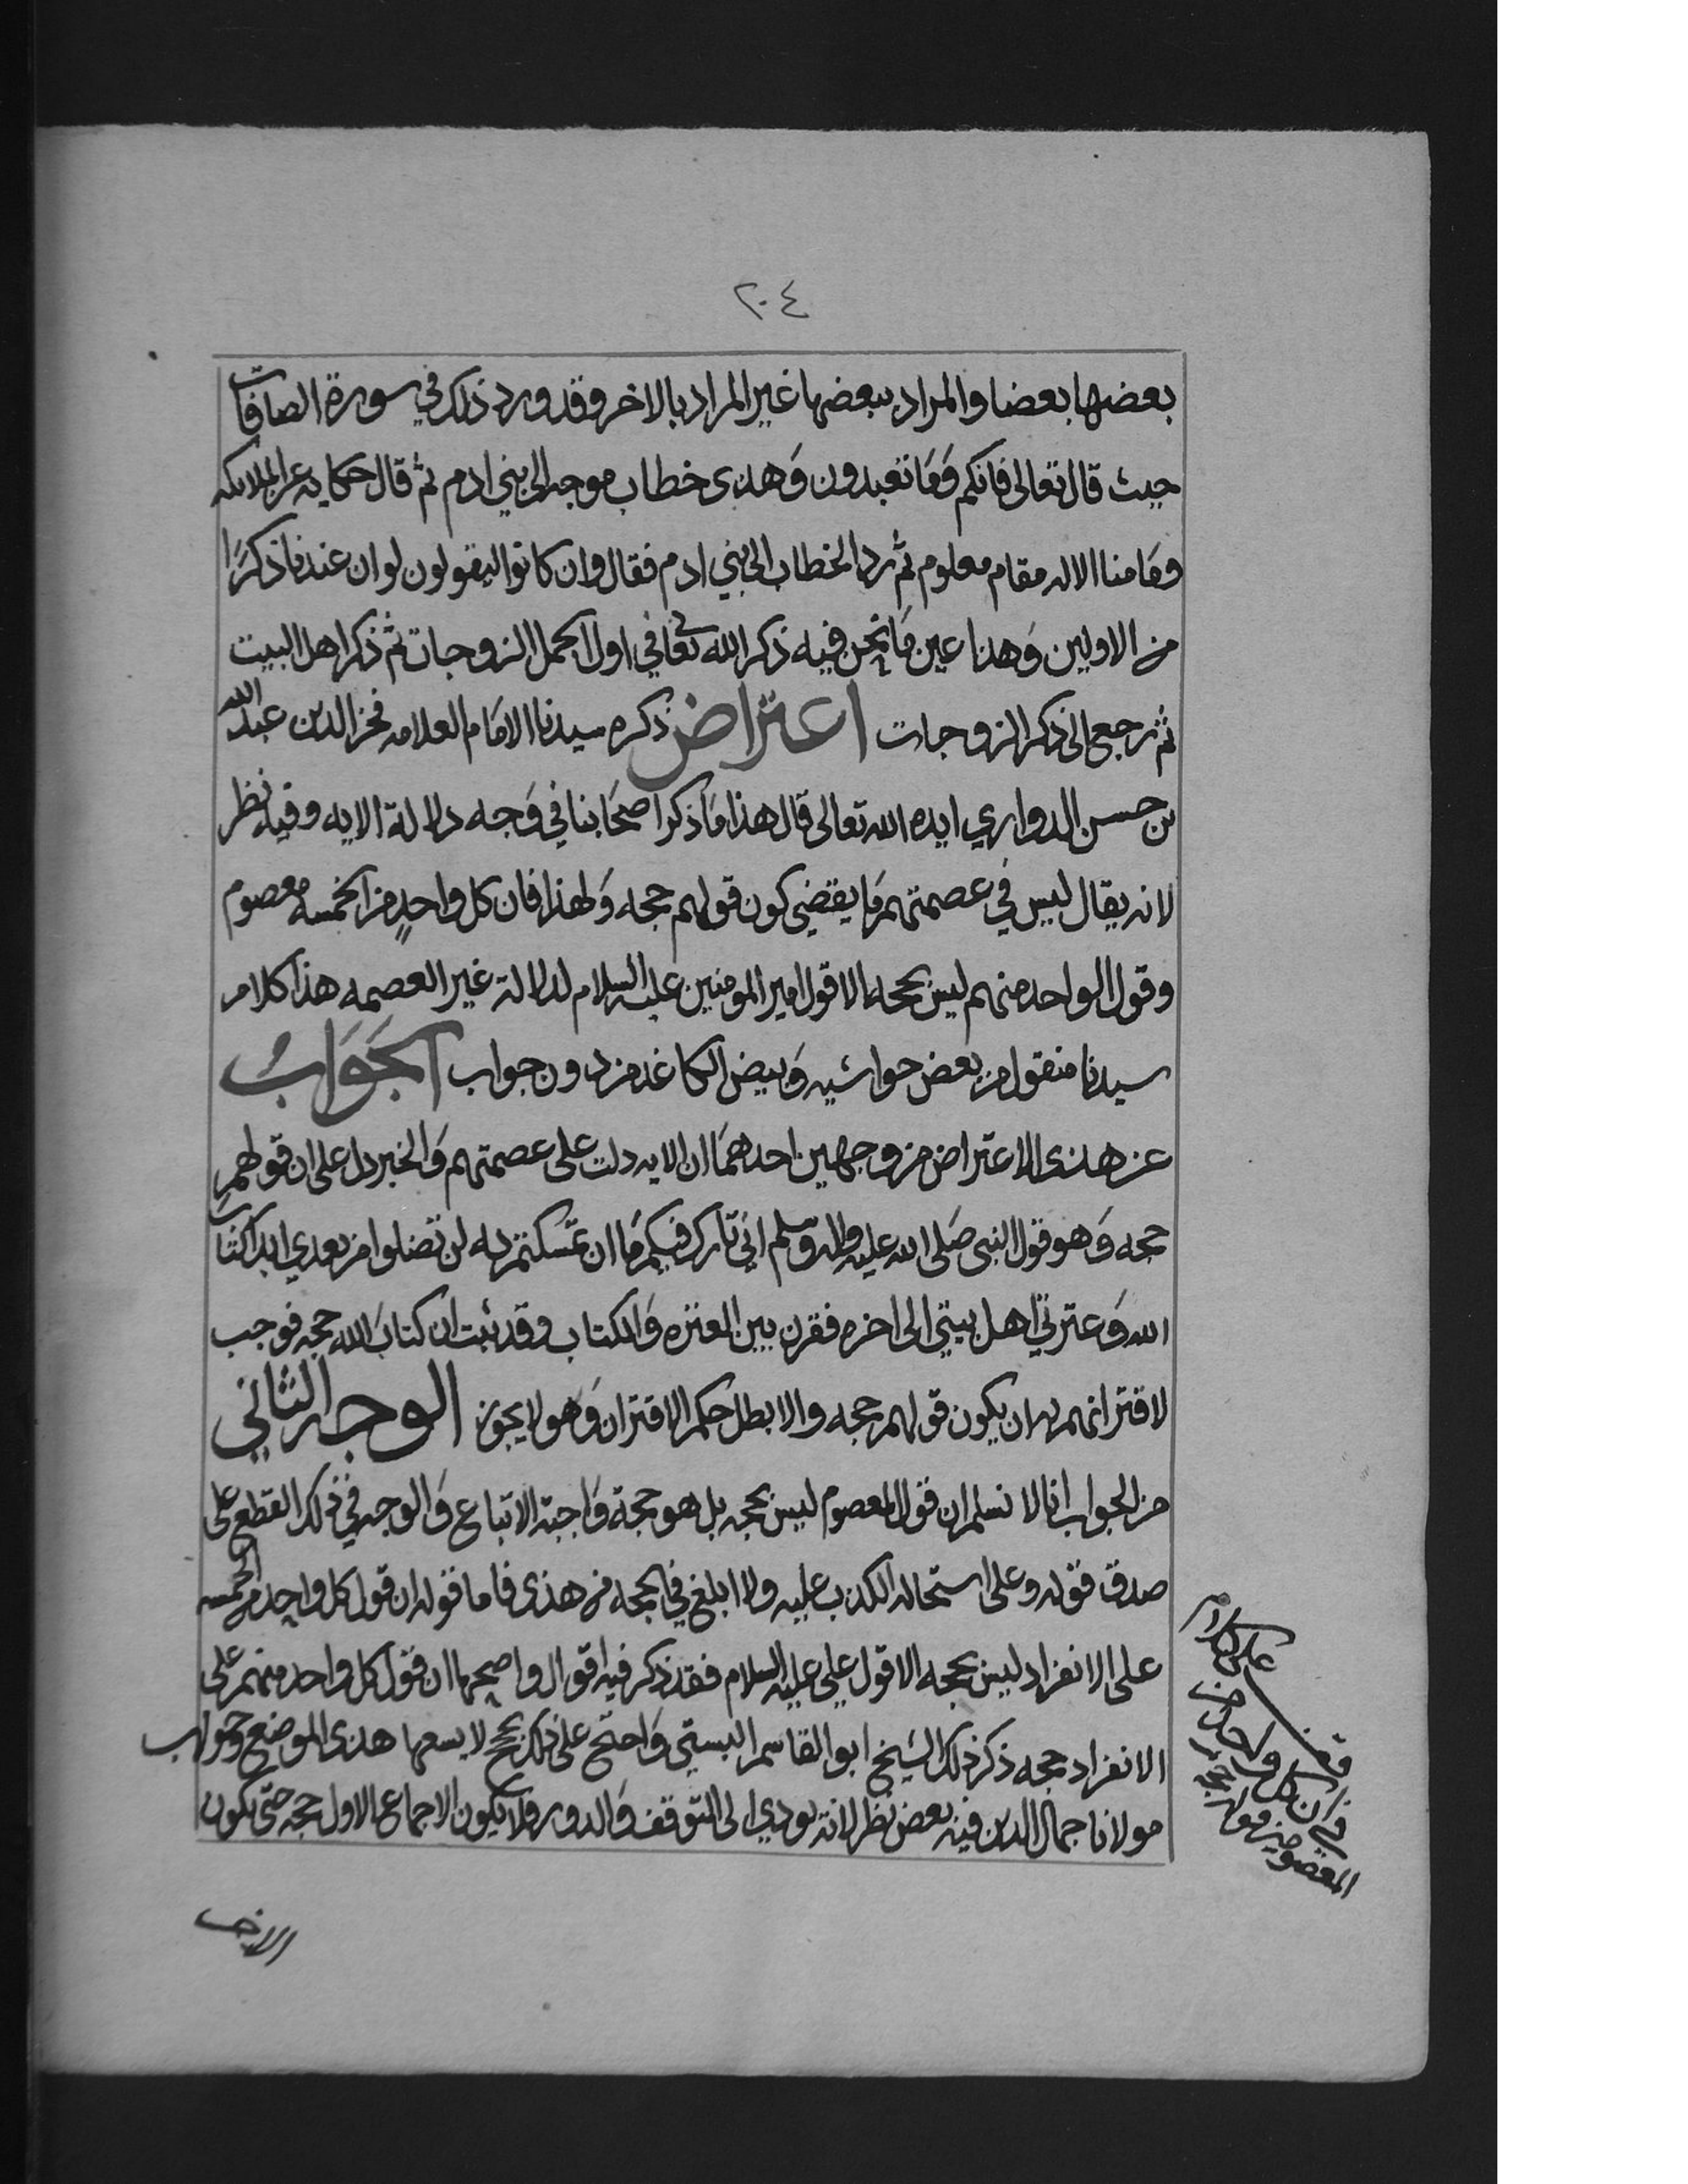 ٢٠٤
بعضها بعضا والمراد ببعضها غير المراد بالاخر وقد ورد ذلك في سورة الصافات
حيث قال تعالى فانكم وَمَا تعبدون وَهذى خطاب موجه الى بني ادم ثم قال حكايه عن الملايكه
ومَا منا الا له مقام معلوم ثم رد الخطاب الى بني ادم فقال وان كانوا ليقولون لو ان عندنا ذكرًا
من الاولين وَهذا عين مَا نحن فيه ذكر الله تعالى في اول الجمل الزوجات ثم ذكر اهل البيت
ثم رجع الى ذكر الزوجات اعتراض ذكره سيدنا الامَام العلامه فخر الدين عبد الله
بن حسن الدواري ايده الله تعالى قال هذا مَا ذكر اصحَابنا في وَجه دلالة الايه وفيه نظر
لانه يقال ليس في عصمتهم مَا يقتضي كون قولهم حجه وَلهذا فان كل واحدٍ من الخمسه معصوم
وقول الواحد منهم ليس بحجه الا قول امير المومنين عليه السلام لدلالة غير العصمه هذا كلام
سيدنا منقول من بعض حواشيه وَبيض الكاغد من دون جواب الجَوَابُ
عن هذى الاعتراض من وجهين احدهمَا ان الايه دلت على عصمتهم وَالخبر دل على ان قولهم
حجه وَهو قول النبى صَلى الله عليه واله وسلم اني تارك فيكم مَا ان تمسكتم به لن تضلوا من بعدي ابدا كتاب
الله وَعترتي اهل بيتي الى اخره فقرن بين العترَه وَالكتاب وقد ثبت ان كتابَ الله حجه فوجب
لاقترانهم به ان يكون قولهم حجه والا بطل حكم الاقتران وَهو لا يجوز الوجه الثاني
من الجواب انا لا نسلم ان قول المعصوم ليس بحجه بل هو حجة وَاجبة الاتباع وَالوجه في ذلك القطع على
صدق قوله وعلى استحاله الكذب عليه ولا ابلغ في الحجه من هذى فاما قوله ان قول كل واحد من الخمسه
على الانفراد ليس بحجه الا قول علي عليه السلام فقد ذكر فيه اقوال واصحها ان قول كل واحد منهم على
الانفراد حجه ذكر ذلك الشيخ ابو القاسم البستي وَاحتج على ذلك بحجج لا يسعها هذى الموضع وجواب
مولانا جمال الدين فيه بعض نظر لانه يودي الى التوقف وَالدور فلا يكون الاجماع الاول حجه حتى يكون
على كلام
قف
في ان كل واحد من
المعصومين قوله حجه